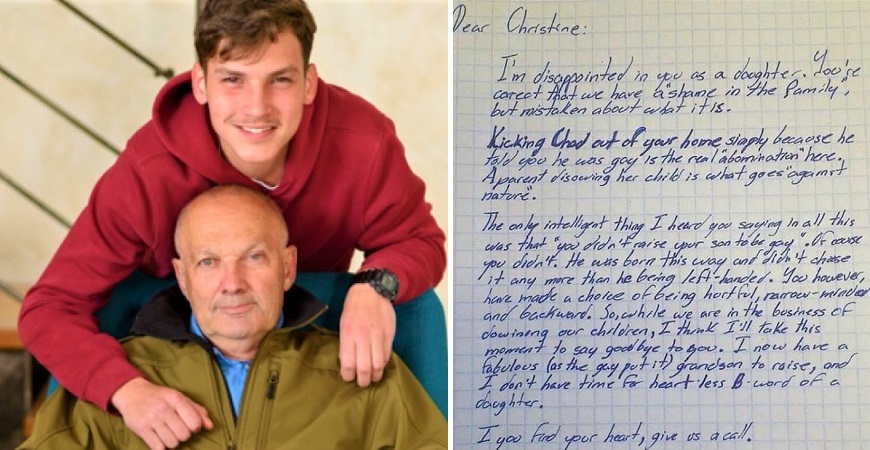 Dear Christine:
I'm disappointed in you as a daughter. You're
corect that we have a "shame in the family",
but mistaken about what it is.
Kicking Chad out of your home simply because he
told you he was gay is the real "abomination" here.
A parent disowing her child is what goes "against
nature".
The only intelligent thing I heard you saying in all this
was that "you didn't raise your son to be gay". Of couse
you didn't. He was born this way and didn't choose
it any more than he being left-handed. You however,
have made a choice of being hurtful, narrow-minded
and backward. So, while we are in the business of
disowning our children, I think I'll take this
moment to say goodbye to you. I now have a
fabulous (as the gay put it) grandson to raise, and
I don't have time for heart-less B-word of a
daughter.
I you find your heart, give us a call.